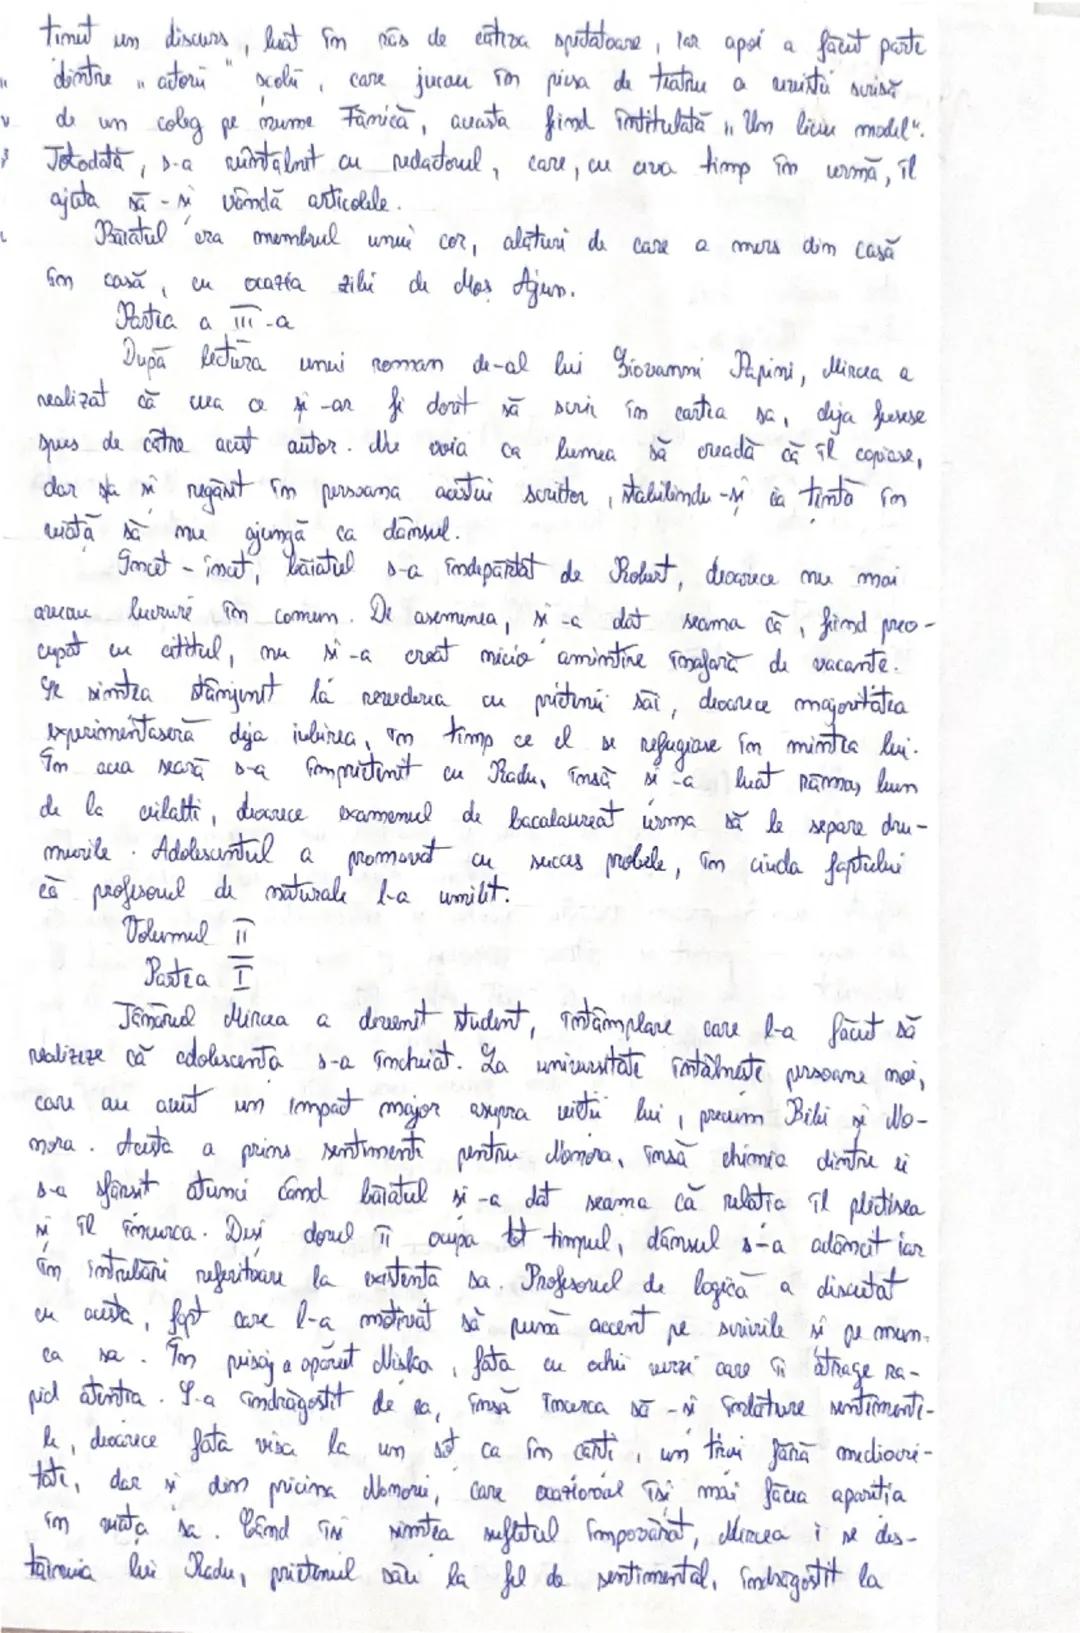 timut un discurs, luat în râs de câtiva spectatoare, iar apoi a făcut parte
dintre "actorii" scolii, care jucau în piesa de teatru a
de un coleg pe nume Fănică, aceasta fiind intitulată "Un liceu model".
Totodată, s-a reîntâlnit cu redactorul, care, cu ceva timp în urmă, îl
ajuta să-si vândă articolele.
Băiatul era membrul unui cor, alături de care a mers din casă
în casă, cu ocazia zilei de Mos Ajun.
Partea a III-a
După lectura unui roman de-al lui Giovanni Papini, Mircea a
realizat că ceea ce si-ar fi dorit să scrie în cartea sa, deja fusese
spus de către acest autor. Nu voia ca lumea să creadă că îl copiase,
dar s-a si regăsit în persoana acestui scriitor, stabilindu-si ca tintă în
viată să nu ajungă ca dânsul.
Încet-încet, băiatul s-a îndepărtat de Robert, deoarece nu mai
aveau lucruri în comun. De asemenea, si-a dat seama că, fiind preo-
cupat cu cititul, nu si-a creat nicio amintire înafară de vacante.
Se simtea stânjenit la revederea cu prietenii săi, deoarece majoritatea
experimentaseră deja iubirea, în timp ce el se refugiase în mintea lui.
În acea seară s-a împrietenit cu Radu, însă si-a luat rămas bun
de la ceilalti, deoarece examenul de bacalaureat urma să le separe dru-
murile. Adolescentul a promovat cu succes probele, în ciuda faptului
că profesorul de naturale l-a umilit.
Volumul II
Partea I
Tânărul Mircea a devenit student, întâmplare care l-a făcut să
realizeze că adolescenta s-a încheiat. La universitate întâlneste persoane noi,
care au avut un impact major asupra vietii lui, precum Bibi si No-
nora. Acesta a prins sentimente pentru Nonora, însă chimia dintre ei
s-a sfârsit atunci când băiatul si-a dat seama că relatia îl plictisea
si îl încurca. Desi dorul îi ocupa tot timpul, dânsul s-a adâncit iar
în întrebări referitoare la existenta sa. Profesorul de logică a discutat
cu acesta, fapt care l-a motivat să pună accent pe scrierile si pe mun-
ca sa. În peisaj a apărut Niska, fata cu ochii verzi care îi atrage ra-
pid atentia. S-a îndrăgostit de ea, însă încerca să-si înlăture sentimente-
le, deoarece fata visa la un sot ca în cărti, un trai fără mediocri-
tate, dar si din pricina Nonorei, care ocazional îsi mai făcea aparitia
în viata sa. Când îsi simtea sufletul împovărat, Mircea i se des-
tăinuia lui Radu, prietenul său la fel de sentimental, îndrăgostit la